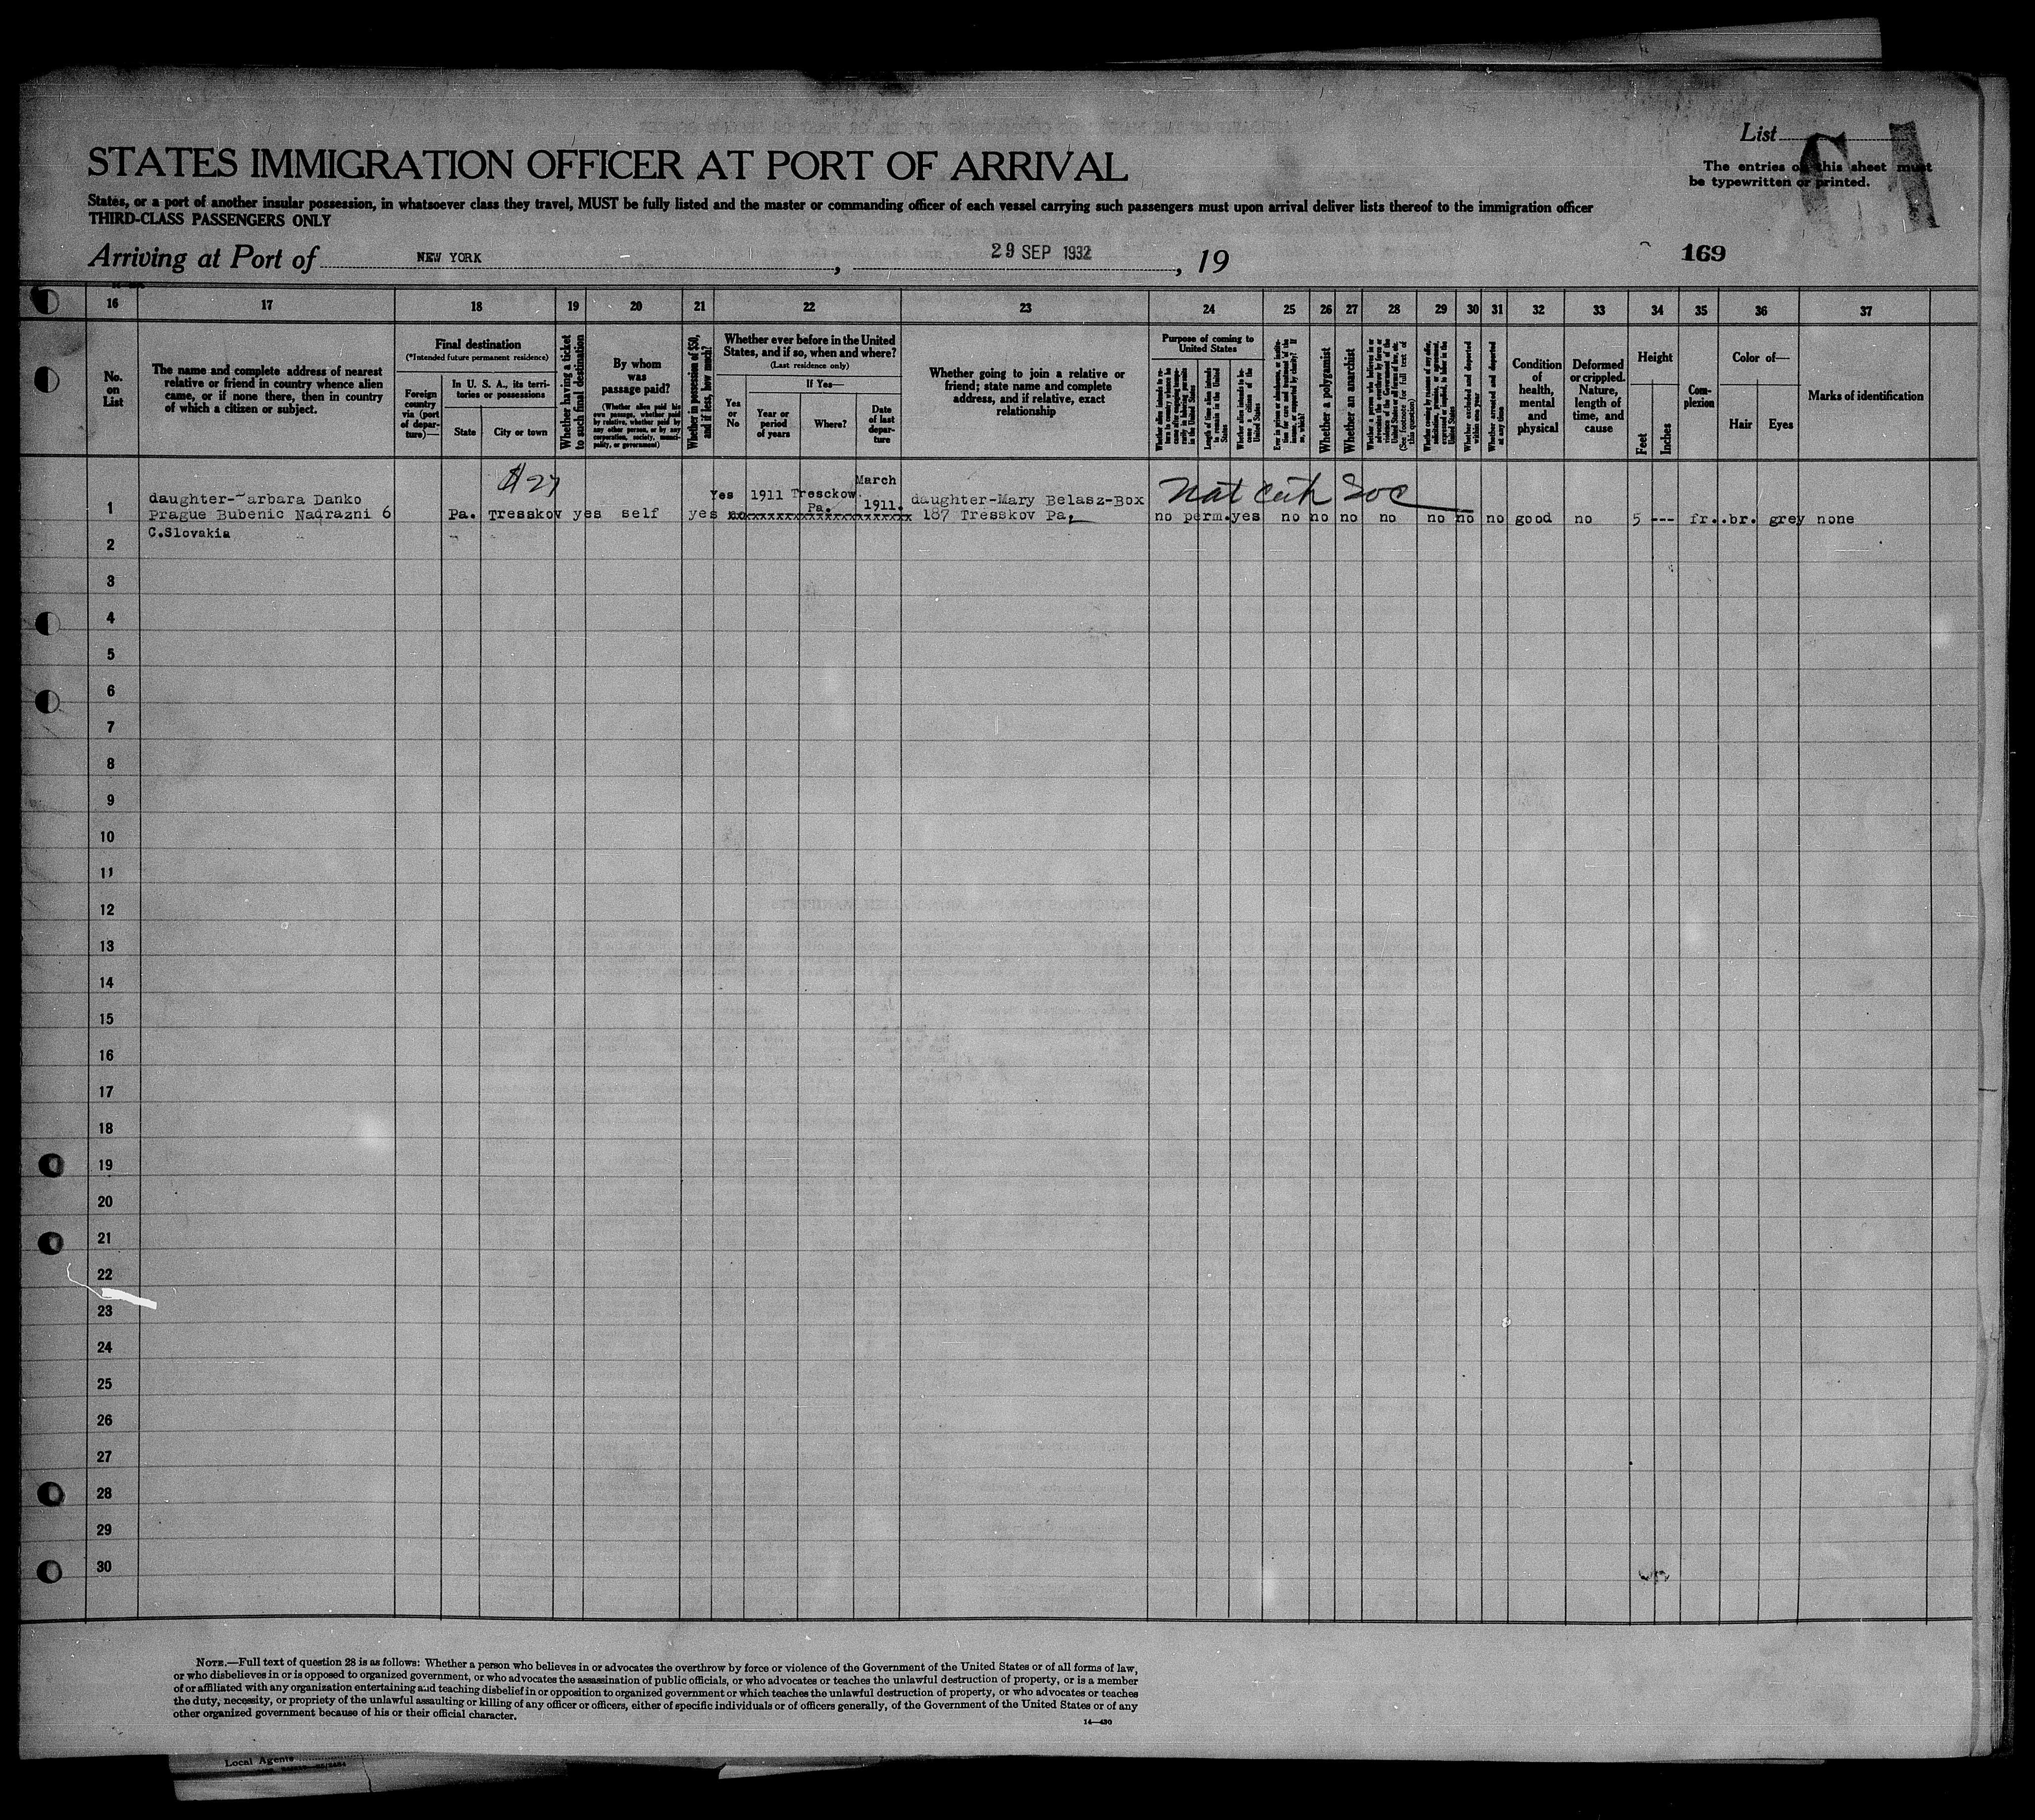 List
The entries on this sheet must
be typewritten or printed.
STATES IMMIGRATION OFFICER AT PORT OF ARRIVAL
States, or a port of another insular possession, in whatsoever class they travel, MUST be fully listed and the master or commanding officer of each vessel carrying such passengers must upon arrival deliver lists thereof to the immigration officer
THIRD-CLASS PASSENGERS ONLY
Arriving at Port of NEW YORK, 29 SEP 1932, 19
169
16 17 18 19 20 21 22 23 24 25 26 27 28 29 30 31 32 33 34 35 36 37
No. on List
The name and complete address of nearest
relative or friend in country whence alien
came, or if none there, then in country
of which a citizen or subject.
Final destination
(*Intended future permanent residence)
Foreign
country
via (port
of depar-
ture)—
In U. S. A., its terri-
tories or possessions
State
City or town
Whether having a ticket
to such final destination
By whom
was
passage paid?
(Whether alien paid his
own passage, whether paid
by relative, whether paid by
any other person, or by any
corporation, society, munici-
pality, or government)
Whether in possession of $50,
and if less, how much?
Whether ever before in the United
States, and if so, when and where?
(Last residence only)
Yes
or
No
If Yes—
Year or
period
of years
Where?
Date
of last
depar-
ture
Whether going to join a relative or
friend; state name and complete
address, and if relative, exact
relationship
Purpose of coming to
United States
Length of time alien intends
to remain in the United
States
Whether alien intends to be-
come a citizen of the
United States
Whether a polygamist
Whether an anarchist
Whether excluded and deported
within one year
Whether arrested and deported
at any time
Condition
of
health,
mental
and
physical
Deformed
or crippled.
Nature,
length of
time, and
cause
Height
Feet
Inches
Com-
plexion
Color of—
Hair
Eyes
Marks of identification
March
daughter-arbara Danko Yes 1911 Tresckow 1911. daughter-Mary Belasz-Box Nat Cath Soc
Pa.
1 Prague Bubenic Nadrazni 6 Pa. Tresskov yes self yes no 187 Tresskov Pa. no perm. yes no no no no no no no good no 5 --- fr. br. grey none
C.Slovakia
2
3
4
5
6
7
8
9
10
11
12
13
14
15
16
17
18
19
20
21
22
23
24
25
26
27
28
29
30
NOTE.—Full text of question 28 is as follows: Whether a person who believes in or advocates the overthrow by force or violence of the Government of the United States or of all forms of law,
or who disbelieves in or is opposed to organized government, or who advocates the assassination of public officials, or who advocates or teaches the unlawful destruction of property, or is a member
of or affiliated with any organization entertaining and teaching disbelief in or opposition to organized government or which teaches the unlawful destruction of property, or who advocates or teaches
the duty, necessity, or propriety of the unlawful assaulting or killing of any officer or officers, either of specific individuals or of officers generally, of the Government of the United States or of any
other organized government because of his or their official character.
14—430
Local Agents